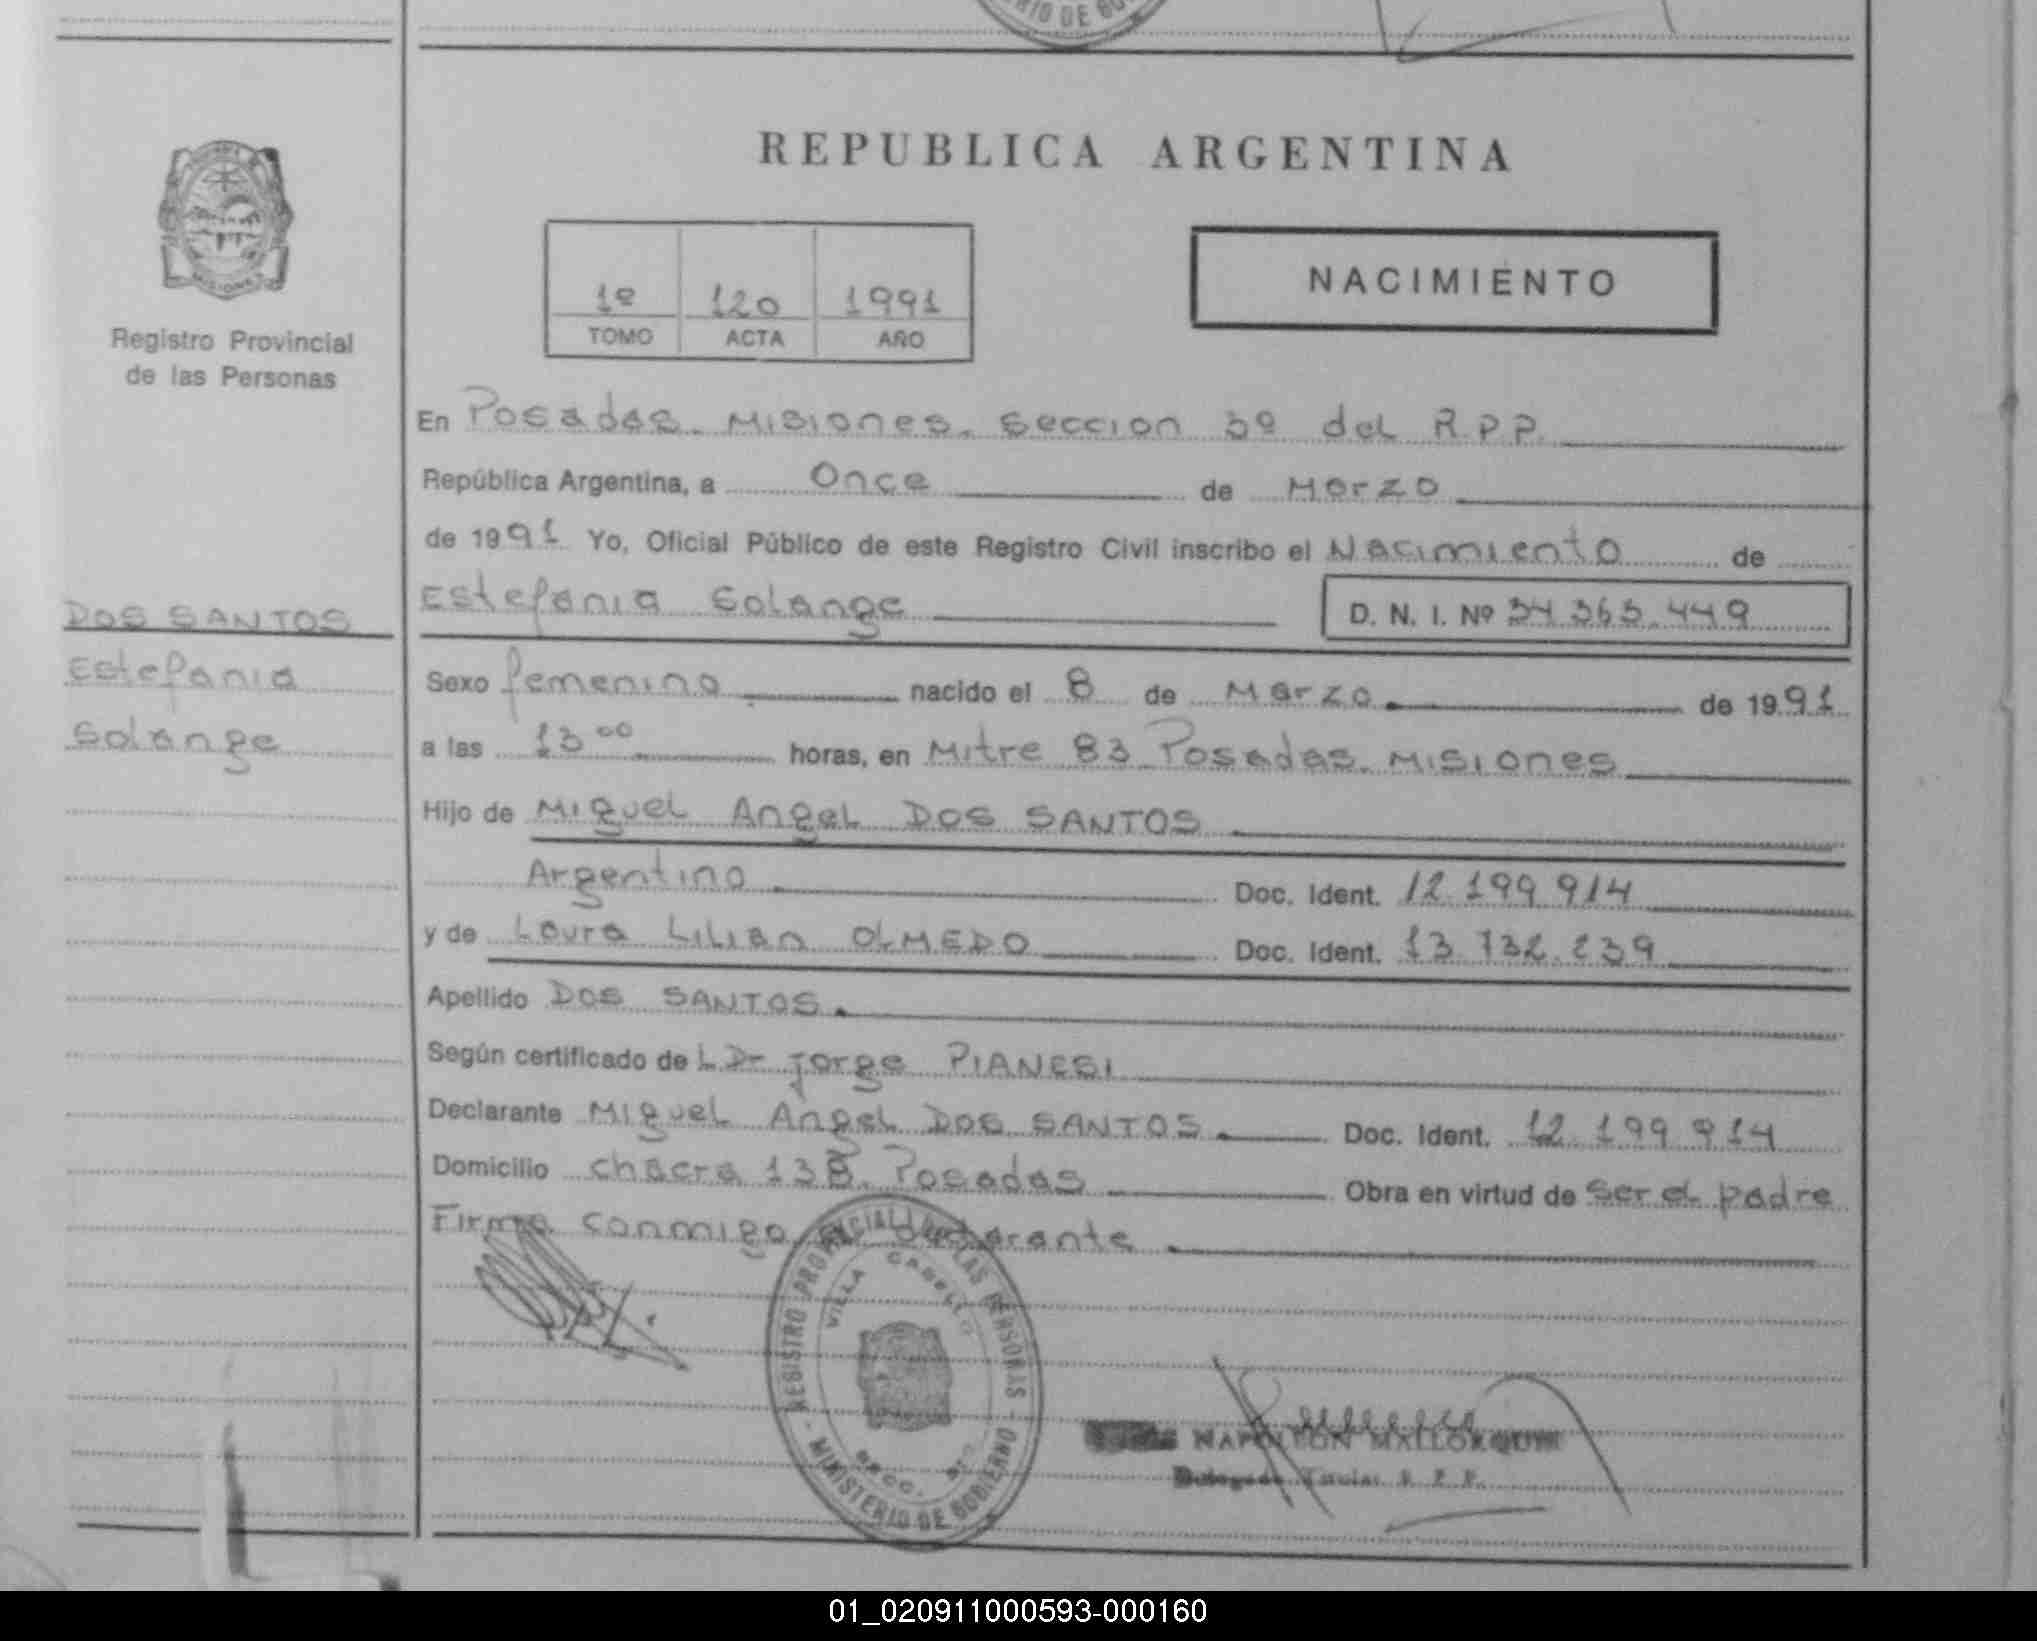 RIO DE GO
REPUBLICA ARGENTINA
1º 120 1991
TOMO ACTA AÑO
NACIMIENTO
Registro Provincial
de las Personas
En Posadas. Misiones. Seccion 3º del R.P.P.
República Argentina, a Once de Marzo
de 1991 Yo, Oficial Público de este Registro Civil inscribo el Nacimiento de
Estefania Solange D. N. I. Nº 34.363.449
DOS SANTOS
Estefania
Solange
Sexo femenino nacido el 8 de Marzo. de 1991
a las 13 00 horas, en Mitre 83 Posadas. Misiones
Hijo de Miguel Angel DOS SANTOS
Argentino Doc. Ident. 12.199.914
y de Laura Lilian OLMEDO Doc. Ident. 13.732.239
Apellido DOS SANTOS.
Según certificado de L Dr Jorge PIANESI
Declarante Miguel Angel DOS SANTOS. Doc. Ident. 12.199.914
Domicilio chacra 138. Posadas Obra en virtud de ser el padre
Firma conmigo el declarante
REGISTRO PROVINCIAL DE LAS PERSONAS - MINISTERIO DE GOBIERNO -
VILLA CABELLO
SECC.
NAPOLEON MALLORQUIN
Delegado Titular R. P. P.
01_020911000593-000160